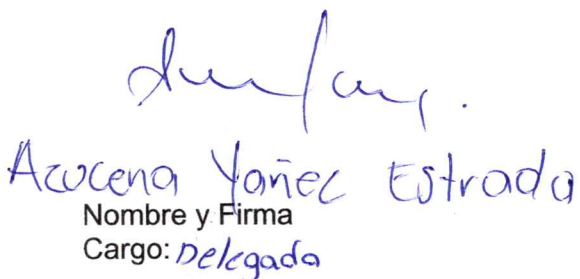 Azucena Yañez Estrada
Nombre y Firma
Cargo: Delegada